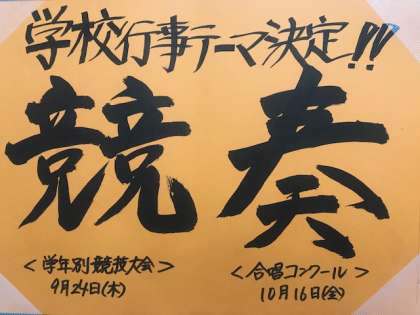 学校行事テーマ決定!!
競奏
<学年別競技大会>
9月24日(木)
<合唱コンクール>
10月16日(金)